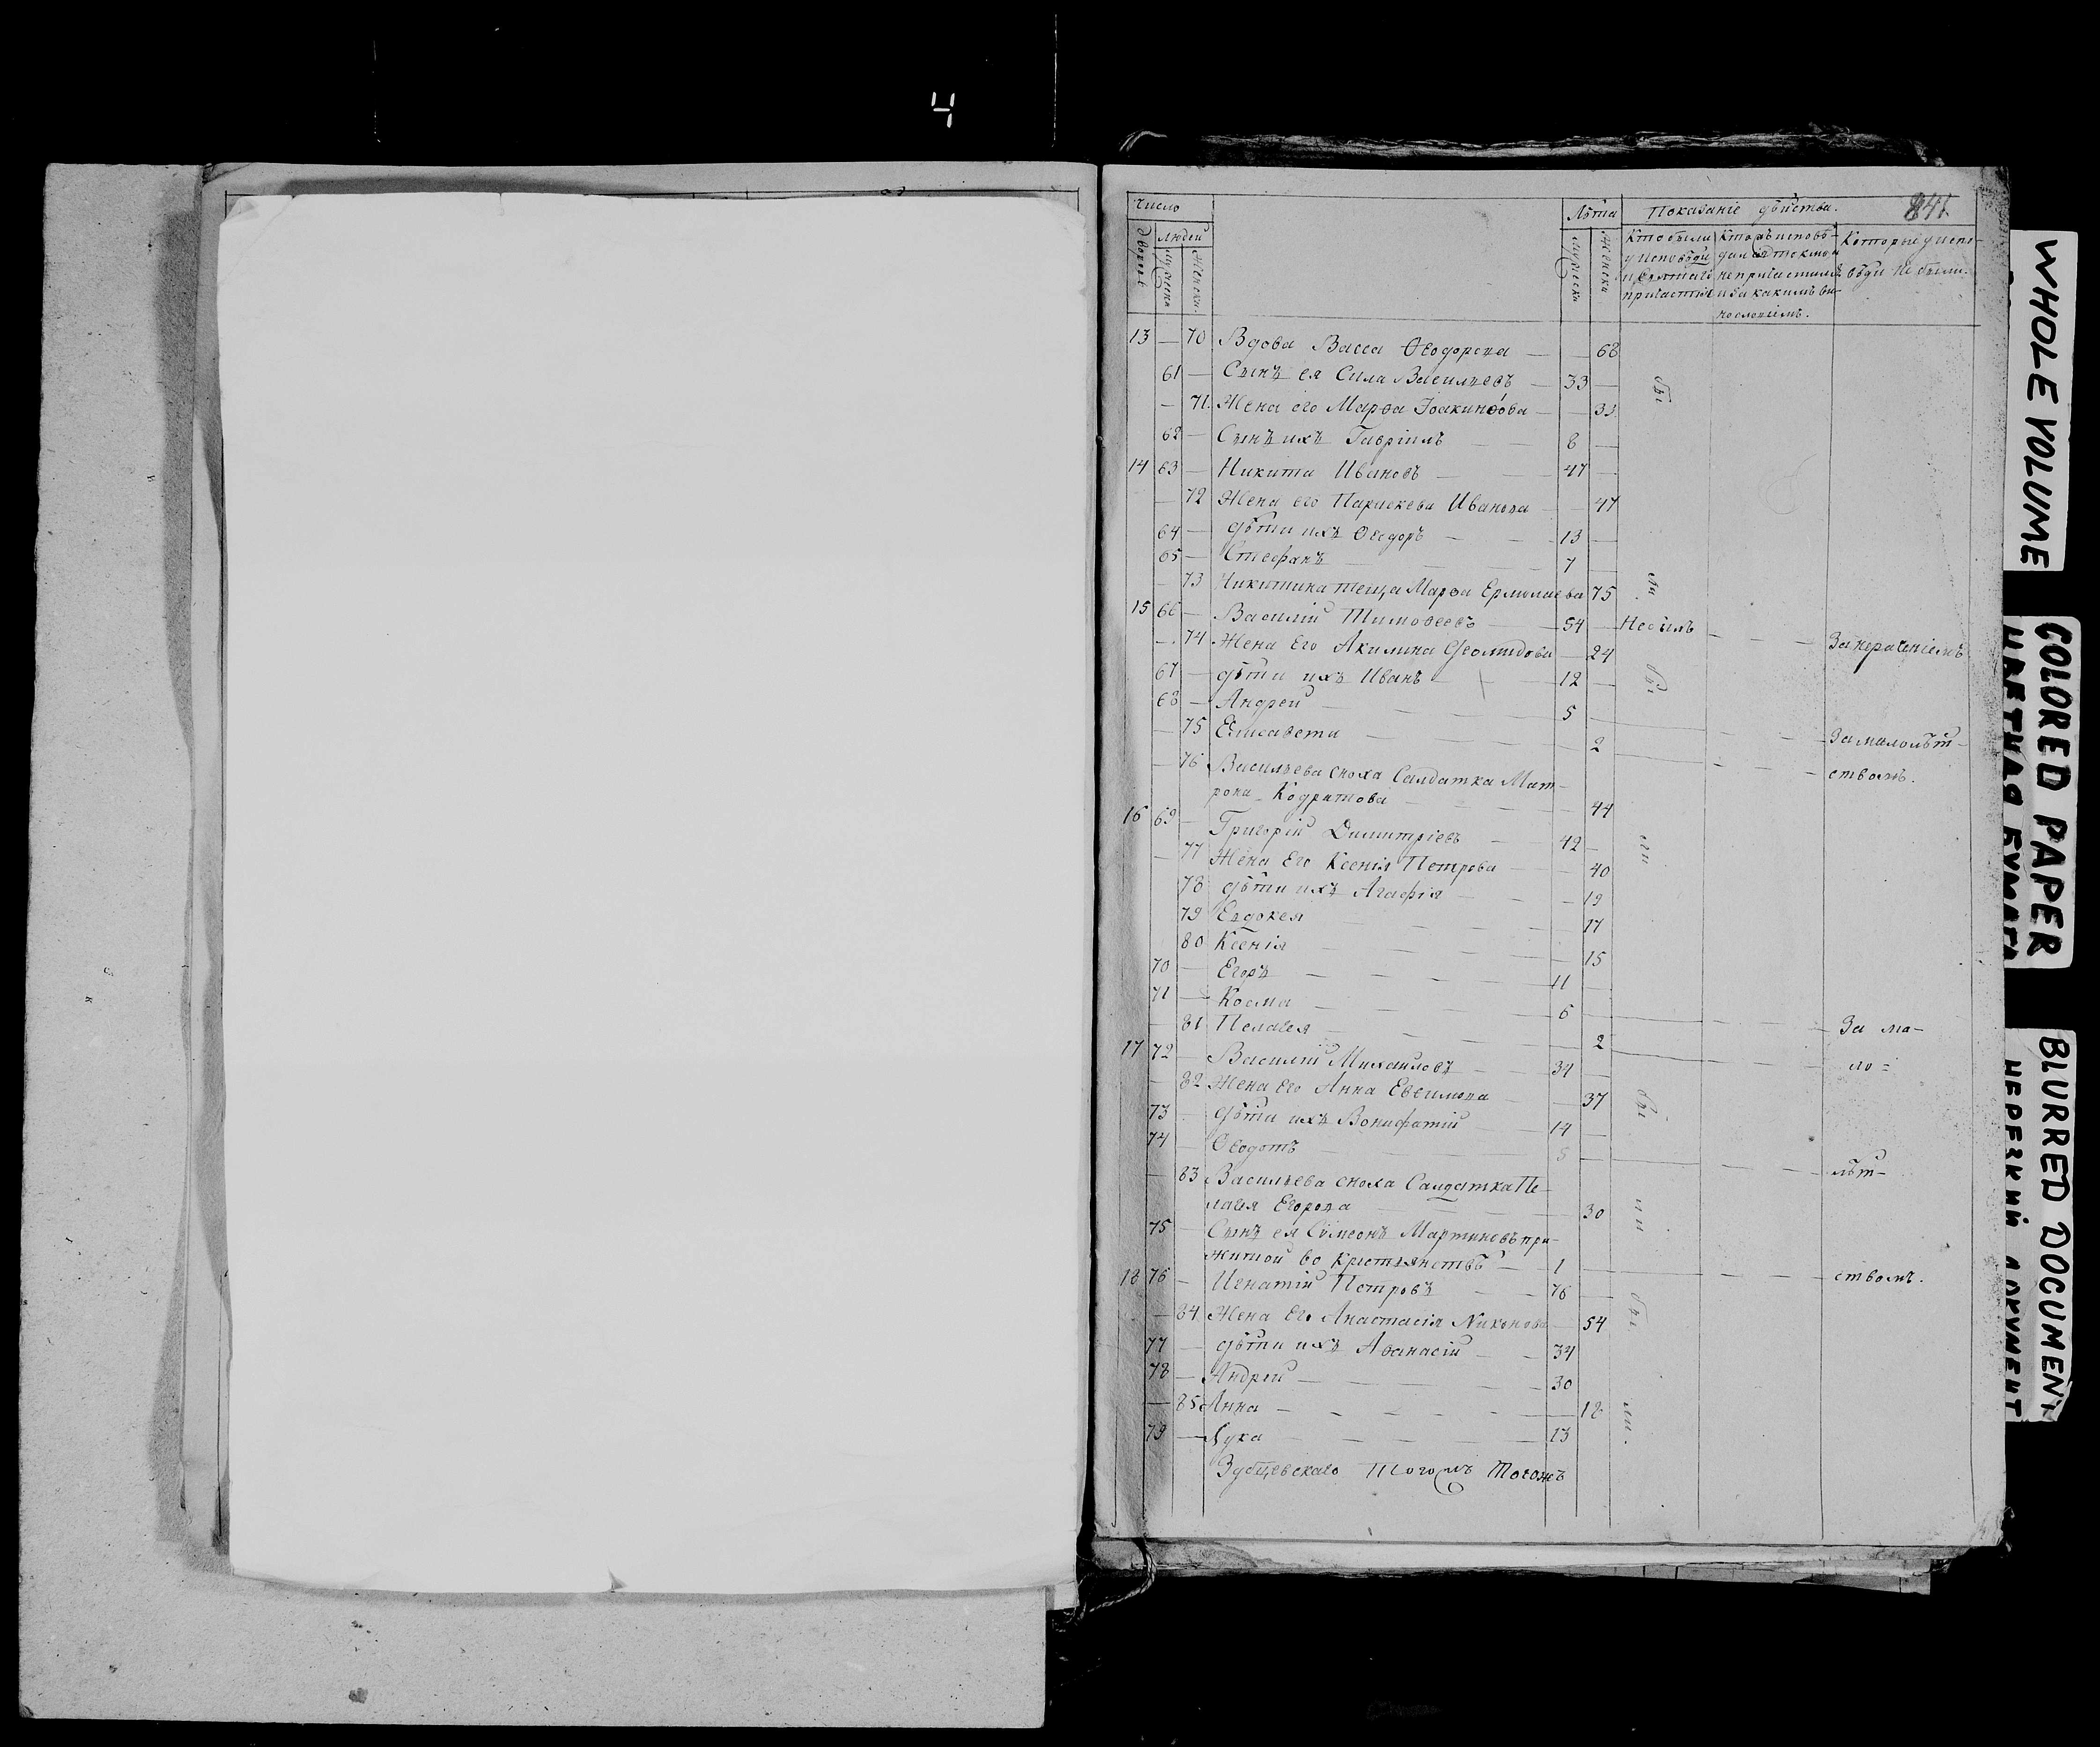 4
841
Число
Лѣта
Показанiе дѣйства.
дворовъ
людей
мужеска
женска.
мужеска
женска
Кто были у исповѣди и святаго причастiя
Кто исповѣдался токмо а не причастился и за какимъ винословiемъ.
Которые у исповѣди не были.
13 — 70 Вдова Васса Ѳеодорова — — 68
61 — Сынъ ея Сила Васильевъ — 33 —
— 71. Жена его Марѳа Iоакинѳова — — 33
62 — Сынъ ихъ Гаврiилъ — — 8 —
бы
14 63 — Никита Ивановъ — — 47 —
— 72 Жена его Параскева Иванова — — 47
64 — дѣти ихъ Ѳеодоръ — — 13 —
65 — Стефанъ — — 7 —
— 73 Никитина теща Марѳа Ермолаева 75
ли
15 66 — Василiй Тимоѳеевъ — 54 — Небылъ — — — За нераченiемъ
— 74 Жена Его Акилина — 24
67 — дѣти ихъ Иванъ — — 12 —
бы
68 — Андрей — — — 5 —
— 75 Елисавета — — — 2 — — — За малолѣт-
— 76 Васильева сноха Салдатка Мат- — — ствомъ.
рона Кодратова — — — 44
16 69 — Григорiй Димитрiевъ — 42 —
ли
— 77 Жена Его Ксенiя Петрова — — 40
78 дѣти ихъ Агафiя — — 19
79 Евдокея — — 17
80 Ксенiя — — 15
70 — Егоръ — — — 11 —
71 — Косма — — 6 — — — За ма-
— 81 Пелагея — — — 2 — — — ло-
17 72 — Василiй Михаиловъ — 34 —
— 82 Жена Его Анна Евѳимова — — 37
бы
73 — дѣти ихъ Вонифатiй — 14 —
74 Ѳеодотъ — — 5 — — — лѣт-
— 83 Васильева сноха Салдатка Пе-
лагея Егорова — — — 30
ли
75 — Сынъ ея Сѵмеонъ Мартиновъ при-
житой во крестьянствѣ — 1 — — — ствомъ.
18 76 — Игнатiй Петровъ — — 76 —
бы
— 84 Жена Его Анастасiя Никонова — 54
77 — дѣти ихъ Аѳанасiй — — 34
78 — Андрей — — — 30
— 85 Анна — — — 18
ли.
79 — Лука — — — 13
Зубцевскаго Тогожъ
WHOLE VOLUME
COLORED PAPER
ЦВЕТНАЯ БУМАГА
BLURRED DOCUMENT
НЕРЕЗКИЙ ДОКУМЕНТ